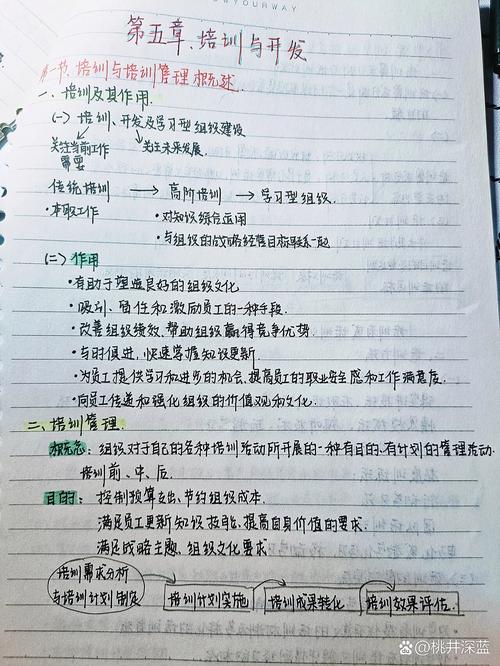 OWYOURWAY
第五章、培训与开发
第一节、培训与培训管理概述.
一、培训及其作用.
(一) 培训、开发及学习型组织建设
关注当前工作需要
关注未来发展.
传统培训 → 高阶培训 → 学习型组织.
·本职工作
·对知识综合运用
·与组织的战略经营目标联系一起
(二) 作用
·有助于塑造良好的组织文化
·吸引、留住和激励员工的一种手段.
·改善组织绩效、帮助组织赢得竞争优势
·与时俱进,快速掌握知识更新.
·为员工提供学习和进步的机会、提高员工的职业安全感和工作满意度.
·向员工传递和强化组织的价值观和文化.
二、培训管理.
概念:组织对于自己的各种培训活动所开展的一种有目的、有计划的管理活动.
培训前、中、后.
目的:控制预算支出、节约组织成本.
满足员工更新知识技能、提高自身价值的要求.
满足战略主题、组织文化要求
培训需求分析
与培训计划制定
培训计划实施
培训成果转化
培训效果评估.
@桃井深蓝